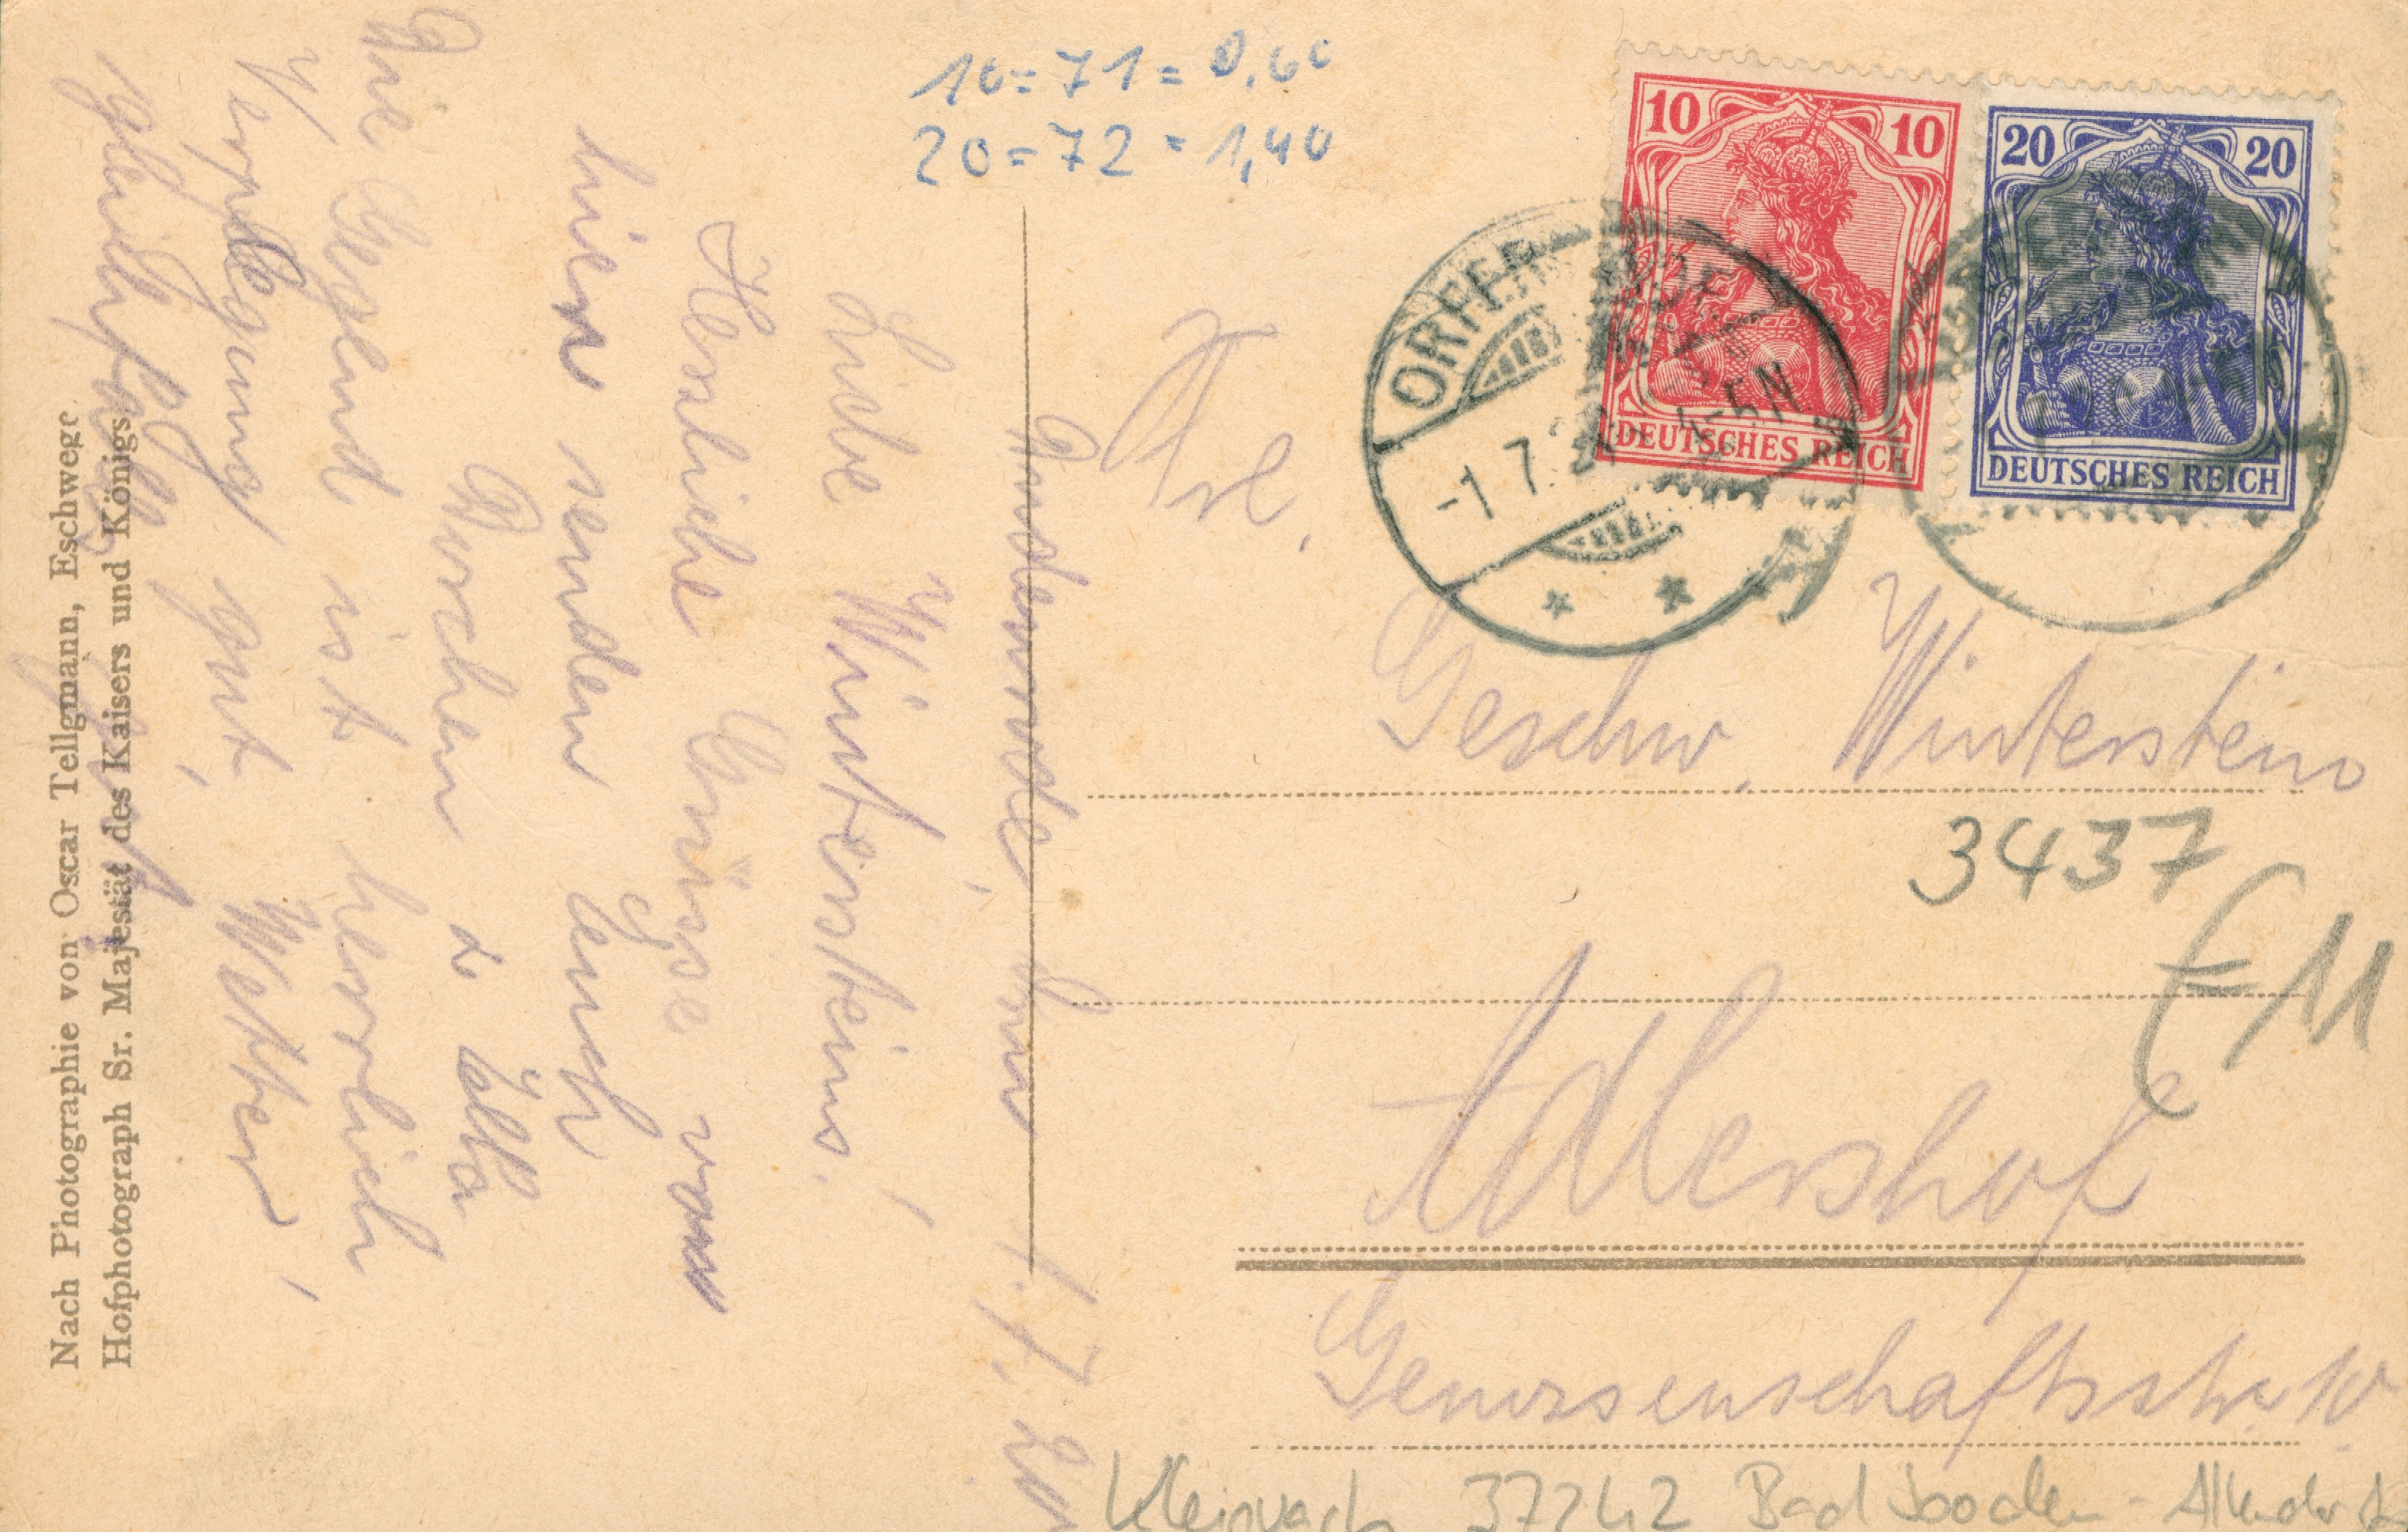 10 = 71 = 0,60
20 = 72 = 1,40
10 10
DEUTSCHES REICH
20 20
DEUTSCHES REICH
-1.7. 4-5N
1.7.20
Liebe Wintersteins!
Herzliche Grüsse von
hier senden Euch
Gurschen & Ella
Die Gegend ist herrlich
Verpflegung gut, Wetter,
gleichfalls gut
Frl.
Geschw. Winterstein
3437
E11
Adlershof
Genossenschaftsstr. 10
Kleinvach 37242 Bad Sooden-Allendorf
Nach Photographie von Oscar Tellgmann, Eschwege
Hofphotograph Sr. Majestät des Kaisers und Königs